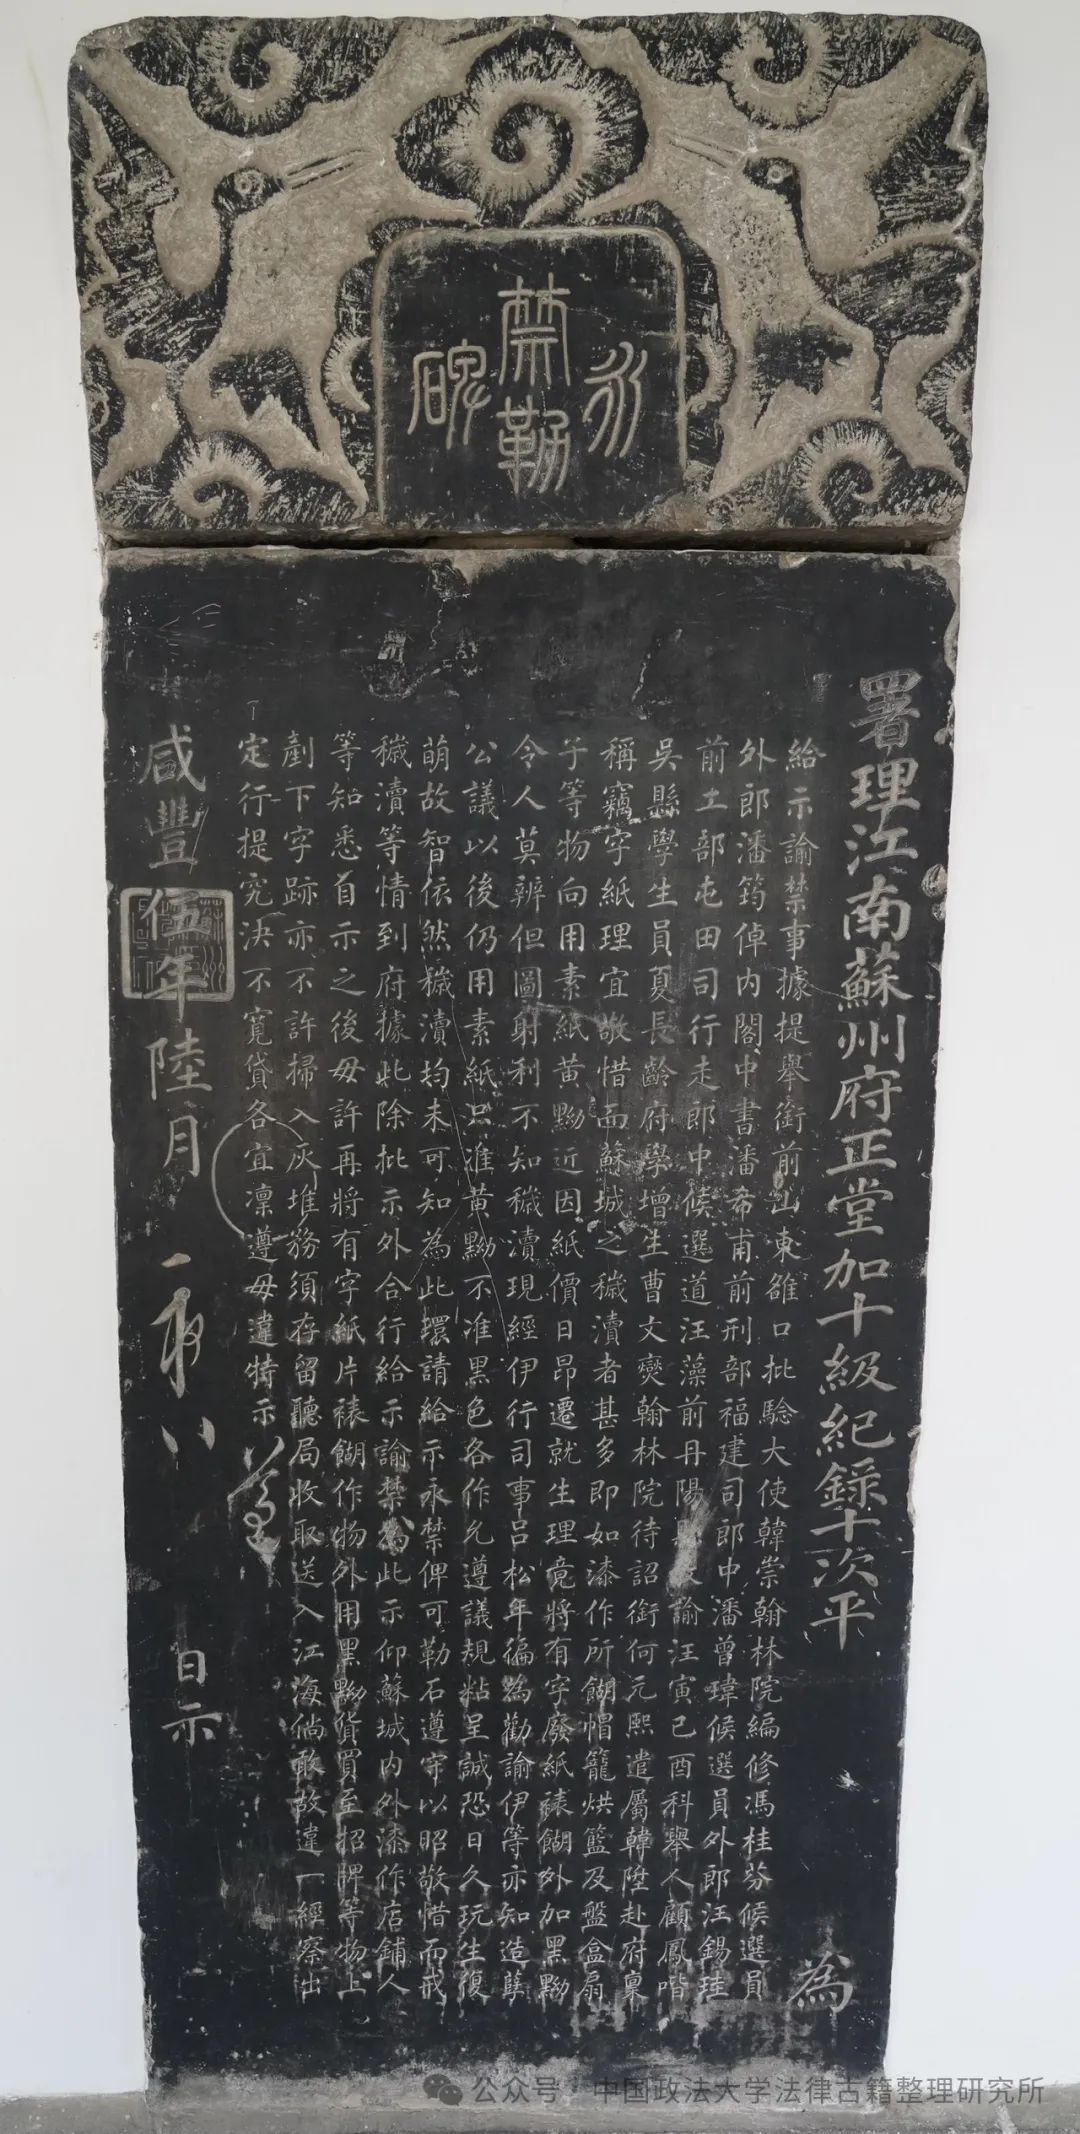 永
禁勒
碑
署理江南蘇州府正堂加十級紀錄十次平
為
給示諭禁事據提舉銜前山東雒口批驗大使韓崇翰林院編修馮桂芬候選員
外郎潘筠倬內閣中書潘希甫前刑部福建司郎中潘曾瑋候選員外郎汪錫珪
前工部屯田司行走郎中候選道汪藻前丹陽縣教諭汪寅己酉科舉人顧鳳喈
吳縣學生員夏長齡府學增生曹文爕翰林院待詔銜何元熙遣屬韓陞赴府稟
稱竊字紙理宜敬惜而蘇城之穢瀆者甚多即如漆作所餬帽籠烘籃及盤盒扇
子等物向用素紙黃黝近因紙價日昂遷就生理竟將有字廢紙裱餬外加黑黝
令人莫辨但圖射利不知穢瀆現經伊行司事呂松年徧為勸諭伊等亦知造孽
公議以後仍用素紙只准黃黝不准黑色各作允遵議規粘呈誠恐日久玩生復
萌故智依然穢瀆均未可知為此環請給示永禁俾可勒石遵守以昭敬惜而戒
穢瀆等情到府據此除批示外合行給示諭禁為此示仰蘇城內外漆作店鋪人
等知悉自示之後毋許再將有字紙片裱餬作物外用黑黝貨買至招牌等物上
剷下字跡亦不許掃入灰堆務須存留聽局收取送入江海倘敢故違一經察出
定行提究決不寬貸各宜凜遵毋違特示
遵
咸豐伍年陸月
八
日示
公众号 · 中国政法大学法律古籍整理研究所